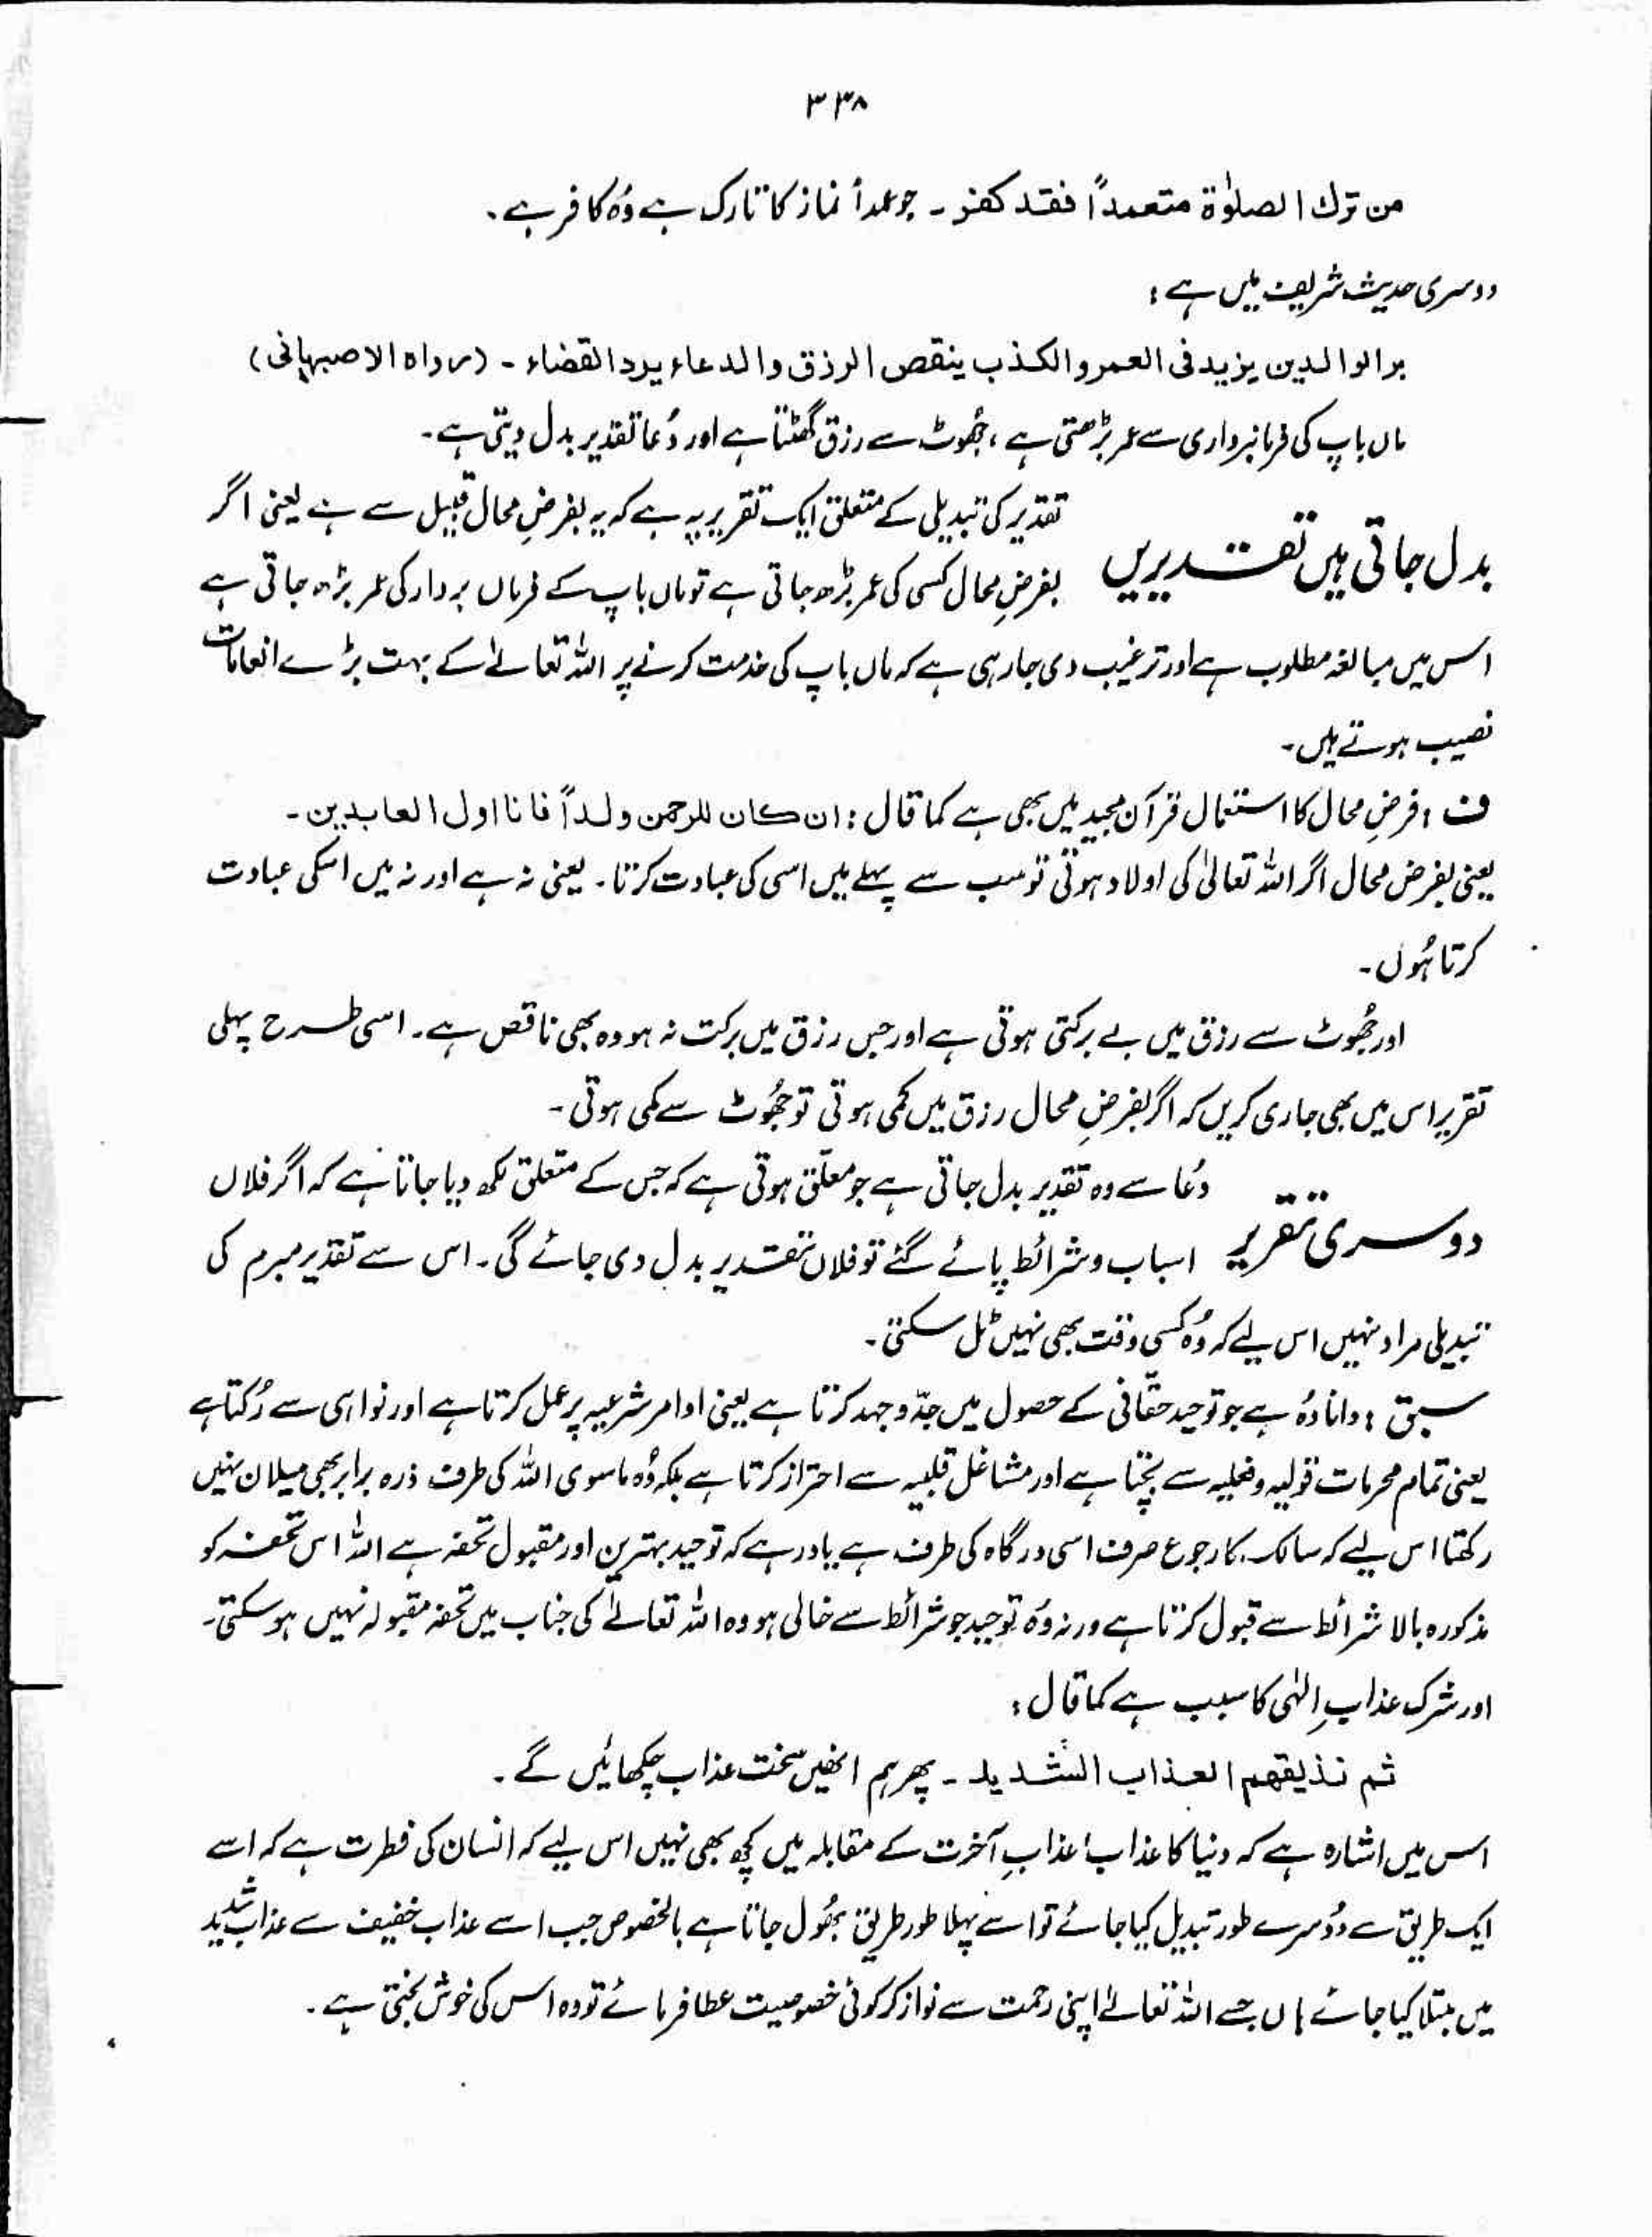 ۳۳۸
من ترك الصلوٰة متعمداً فقد كفر ۔ جو عمداً نماز کا تارک ہے وُہ کافر ہے ۔
دوسری حدیث شریف میں ہے :
بر الوالدین یزید فی العمر والکذب ینقص الرزق والدعاء یرد القضاء ۔ (رواہ الاصبہانی)
ماں باپ کی فرمانبرداری سے عمر بڑھتی ہے ، جُھوٹ سے رزق گھٹتا ہے اور دُعا تقدیر بدل دیتی ہے ۔
بدل جاتی ہیں تقدیریں
تقدیر کی تبدیلی کے متعلق ایک تقریر یہ ہے کہ یہ بفرضِ محال قبیل سے ہے یعنی اگر
بفرضِ محال کسی کی عمر بڑھ جاتی ہے تو ماں باپ کے فرماں بردار کی عمر بڑھ جاتی ہے
اس میں مبالغہ مطلوب ہے اور ترغیب دی جا رہی ہے کہ ماں باپ کی خدمت کرنے پر اللہ تعالےٰ کے بہت بڑے انعامات
نصیب ہوتے ہیں ۔
ف : فرضِ محال کا استعمال قرآن مجید میں بھی ہے کما قال : ان کان للرحمن ولداً فانا اول العابدین ۔
یعنی بفرض محال اگر اللہ تعالیٰ کی اولاد ہوتی تو سب سے پہلے میں اسی کی عبادت کرتا ۔ یعنی نہ ہے اور نہ میں اسکی عبادت
کرتا ہُوں ۔
اور جُھوٹ سے رزق میں بے برکتی ہوتی ہے اور جس رزق میں برکت نہ ہو وہ بھی ناقص ہے ۔ اسی طرح پہلی
تقریر اس میں بھی جاری کریں کہ اگر بفرضِ محال رزق میں کمی ہوتی تو جُھوٹ سے کمی ہوتی ۔
دوسری تقریر
دُعا سے وہ تقدیر بدل جاتی ہے جو معلّق ہوتی ہے کہ جس کے متعلق لکھ دیا جاتا ہے کہ اگر فلاں
اسباب و شرائط پائے گئے تو فلاں تقدیر بدل دی جائے گی ۔ اس سے تقدیر مبرم کی
تبدیلی مراد نہیں اس لیے کہ وُہ کسی وقت بھی نہیں ٹل سکتی ۔
سبق : دانا وُہ ہے جو توحید حقّانی کے حصول میں جدّ و جہد کرتا ہے یعنی اوامر شرعیہ پر عمل کرتا ہے اور نواہی سے رُکتا ہے
یعنی تمام محرمات قولیہ و فعلیہ سے بچتا ہے اور مشاغل قلبیہ سے احتراز کرتا ہے بلکہ وُہ ماسوی اللہ کی طرف ذرہ برابر بھی میلان نہیں
رکھتا اس لیے کہ سالک کا رجوع صرف اسی درگاہ کی طرف ہے یاد رہے کہ توحید بہترین اور مقبول تحفہ ہے اللہ اس تحفہ کو
مذکورہ بالا شرائط سے قبول کرتا ہے ورنہ وُہ توحید جو شرائط سے خالی ہو وہ اللہ تعالےٰ کی جناب میں تحفہ مقبولہ نہیں ہو سکتی ۔
اور شرک عذابِ الٰہی کا سبب ہے کما قال :
ثم نذیقھم العذاب الشدید ۔ پھر ہم انھیں سخت عذاب چکھائیں گے ۔
اس میں اشارہ ہے کہ دنیا کا عذاب عذابِ آخرت کے مقابلہ میں کچھ بھی نہیں اس لیے کہ انسان کی فطرت ہے کہ اسے
ایک طریق سے دُوسرے طور تبدیل کیا جائے تو اسے پہلا طور طریق بھُول جاتا ہے بالخصوص جب اسے عذاب خفیف سے عذاب شدید
میں مبتلا کیا جائے ہاں جسے اللہ تعالےٰ اپنی رحمت سے نواز کر کوئی خصوصیت عطا فرمائے تو وہ اس کی خوش بختی ہے ۔